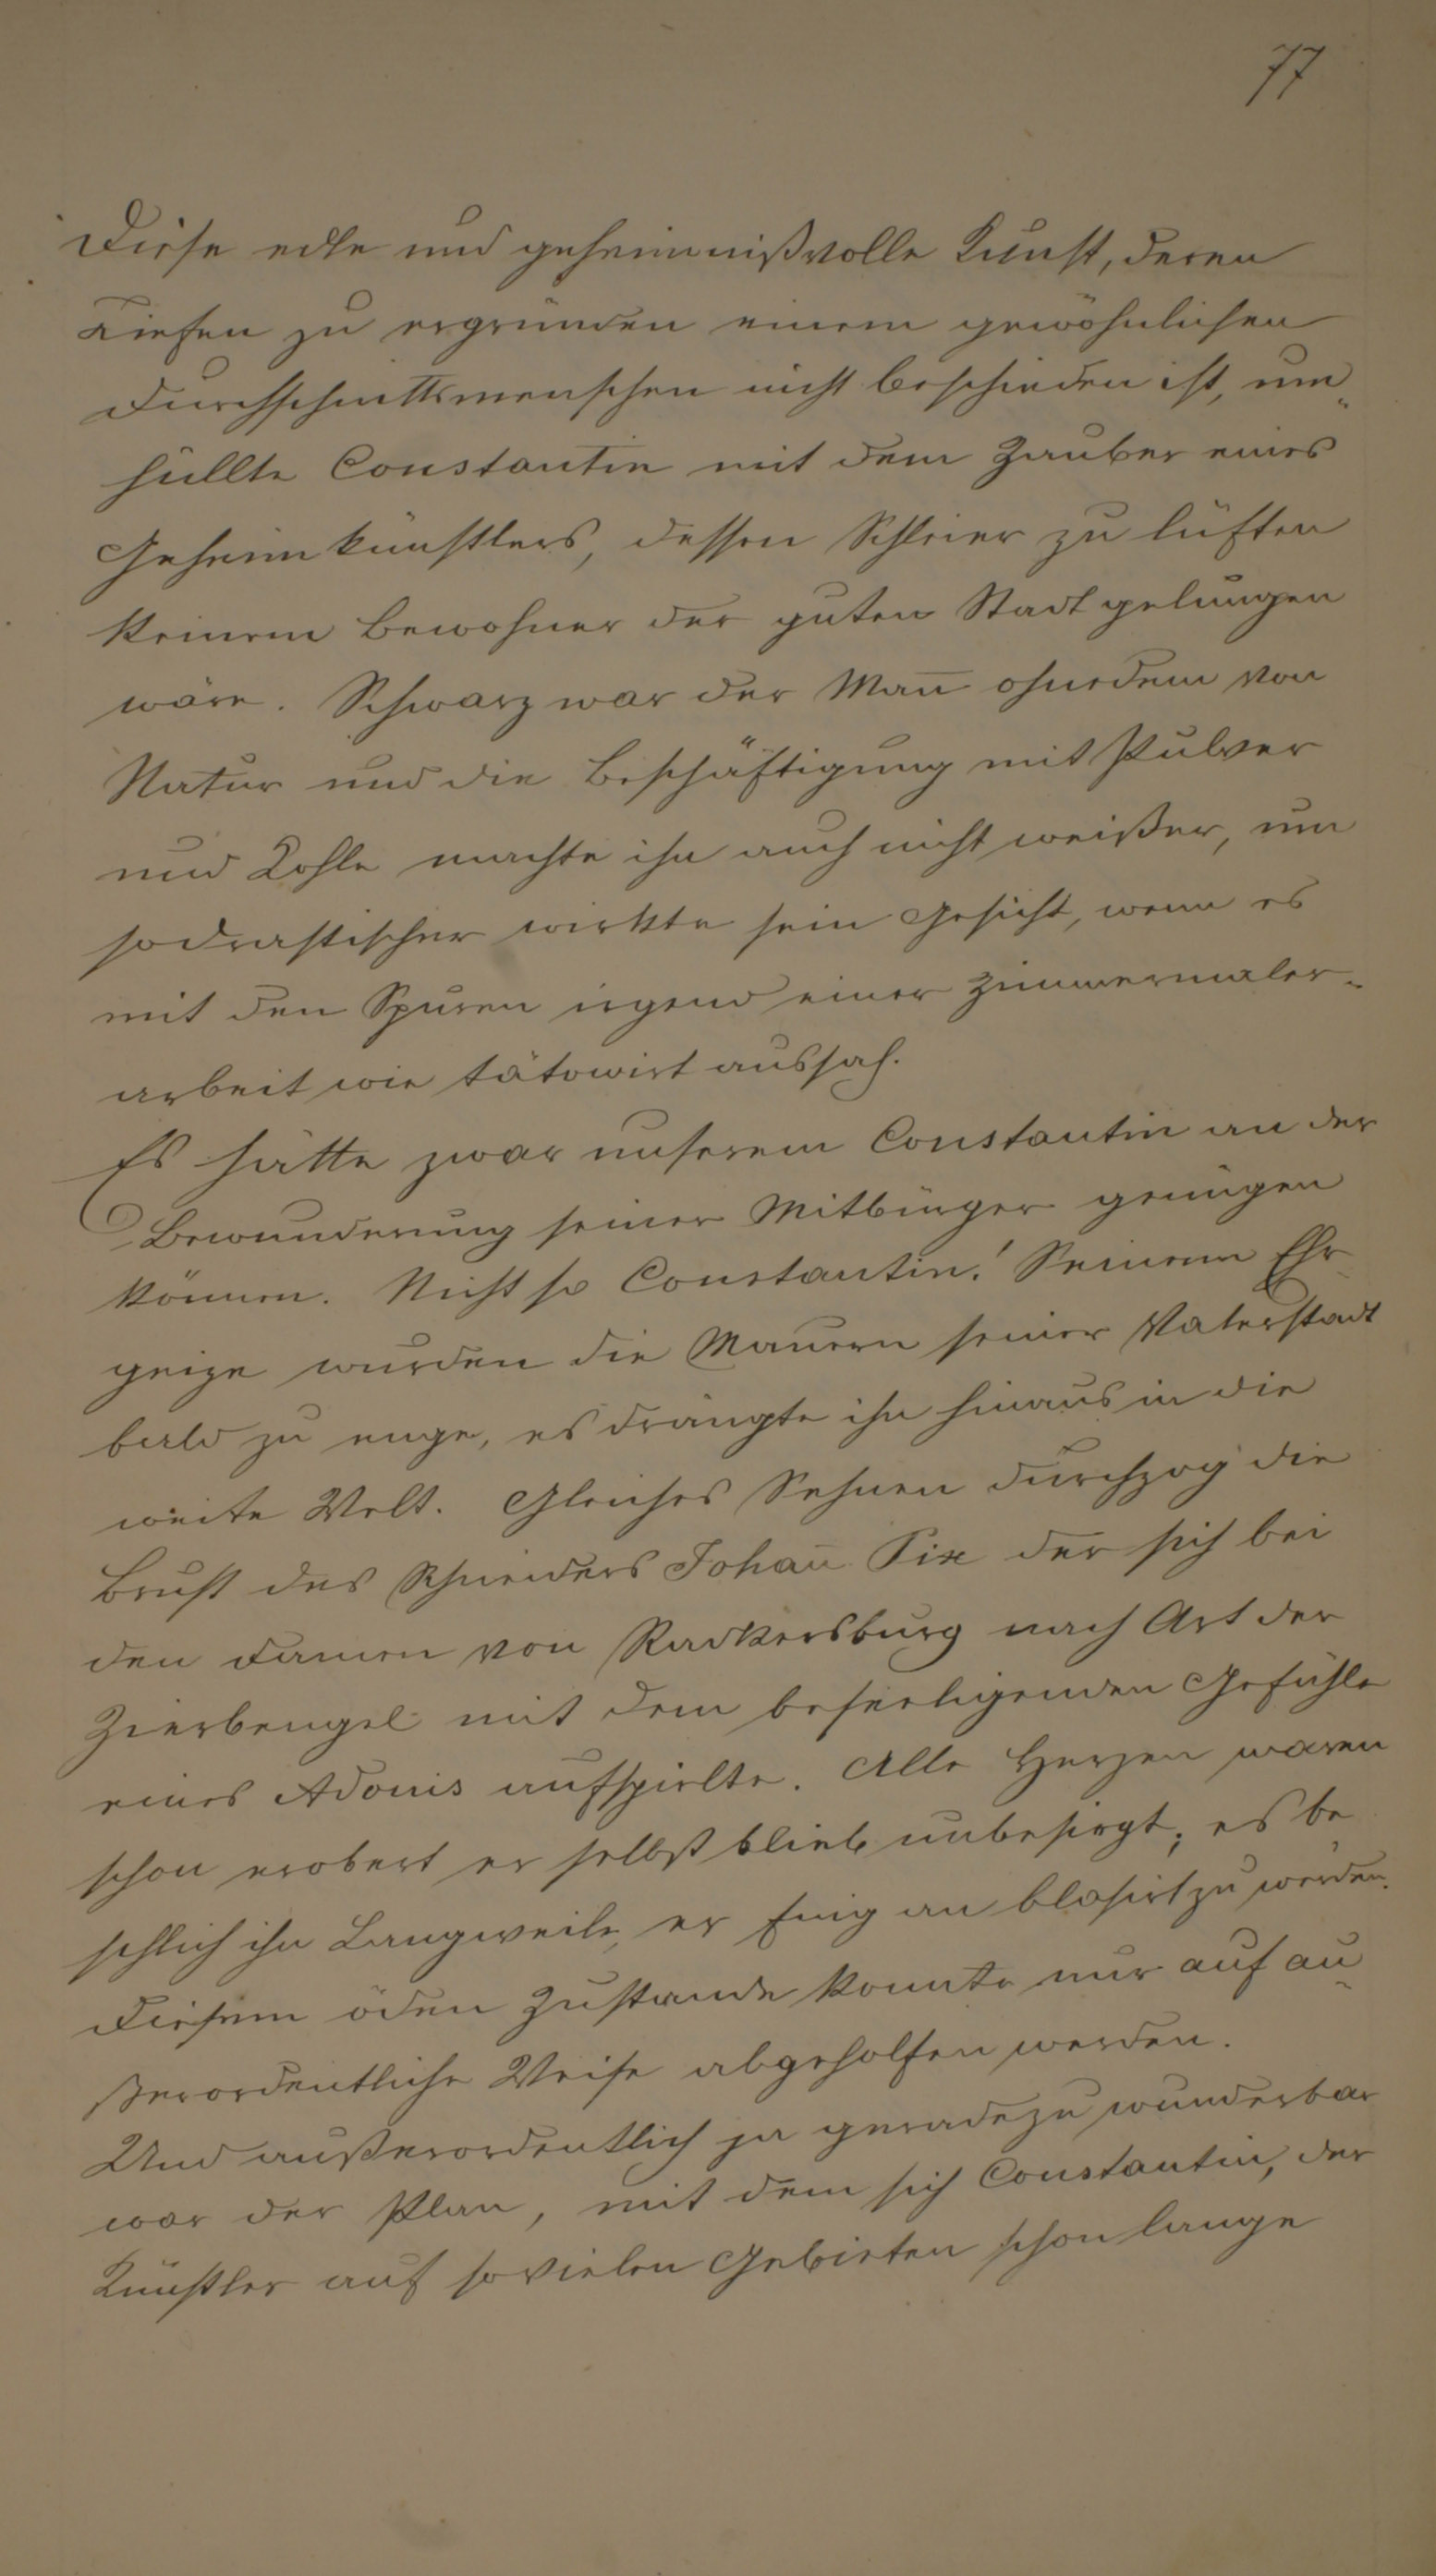 77
Diese edle und geheimnißvolle Kunst, deren
Tiefen zu ergründen einem gewöhnlichen
Durchschnittsmenschen nicht beschieden ist, um„
hüllte Constantin mit dem Zauber eines
Geheimkünstlers, dessen Schleier zu lüften
keinem Bewohner der guten Stadt gelungen
wäre. Schwarz war der Man̅ ohnedem von
Natur und die Beschäftigung mit Pulver
und Kohle machte ihn auch nicht weißer, um
so drastischer wirkte sein Gesicht, wenn es
mit den Spuren irgend einer Zimmermaler„
arbeit wie tätowirt aussah.
Es hätte zwar unserem Constantin an der
Bewunderung seiner Mitbürger genügen
können. Nicht so Constantin! Seinem Ehr
geize wurden die Mauern seiner Vaterstadt
bald zu enge, es drängte ihn hinaus in die
weite Welt. Gleiches Sehnen durchzog die
Brust des Schneiders Johan̅ Pix der sich bei
den Damen von Radkersburg nach Art der
Zierbengel mit dem beseeligenden Gefühle
eines Adonis aufspielte. Alle Herzen waren
schon erobert er selbst blieb unbesiegt; es be
schlich ihn Langweile, er fing an blasirt zu werden.
Diesem öden Zustande konnte nur auf au„
ßerordentliche Weise abgeholfen werden.
Und außerordentlich ja geradezu wunderbar
war der Plan, mit dem sich Constantin, der
Künstler auf so vielen Gebieten schon lange